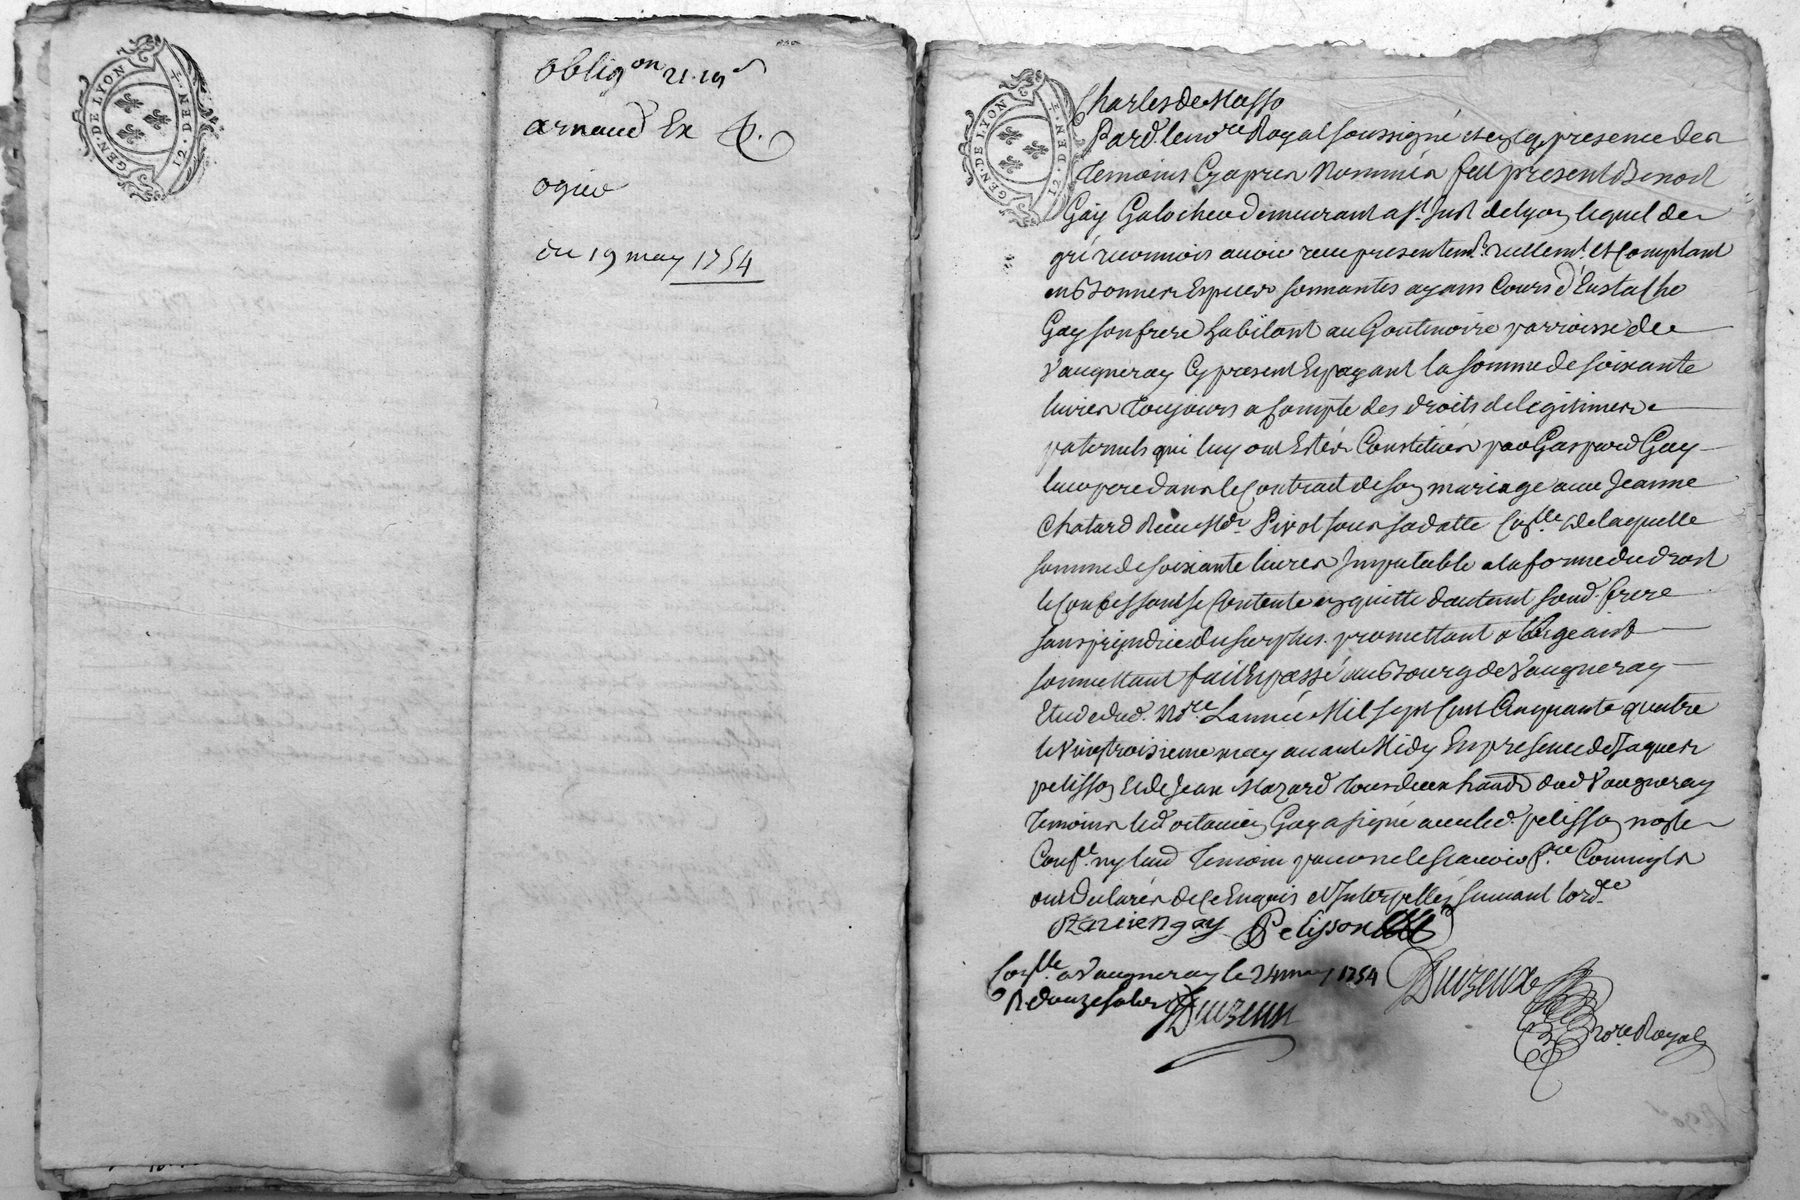 GEN. DE LYON
12. DEN.
obligon 21. 19s
arnaud Ex
ogier
du 19 may 1754
GEN. DE LYON
12. DEN.
Charles de Masso
Pard. le nore Royal soussigné et en presence des
temoins Cyapres Nommés fut present Benoit
Gay Galocher demeurant a St. Just de Lyon lequel de
gré reconnois avoir receu presentemt. réellemt. et Comptant
en Bonnes Especes sonnantes ayans Cours d'Eustache
Gay son frere habitant au Goutenoire parroisse de
Vaugneray Cy present Et payant la somme de soixante
livres toujours a Compte des droits de legitimes
paternels qui luy ont Estés Constitués par Gaspard Gay
leur pere dans le Contrait de son mariage avec Jeanne
Chatard Receu Me. Pivot sous sa datte Conlle. de laquelle
somme de soixante livres Imputable a la forme du droit
le Confessant se Contente en quitte d'autant sond. frere
sans prejudice du surplus. promettant obligeant
soumettant fait et passé au Bourg de Vaugneray
Etude dud. Nore. L'année Mil sept Cent Cinquante quatre
le Vingtroisieme may avant Midy En presence de Jaques
pelisson Et de Jean Mazard tous deux dud Vaugneray
temoins led Gay a signé avec led. pelisson non les
ny laud temoin pour ne le sçavoir
ont Declarés de ce Enquis et Interpellés suivant lorde.
gay Pelisson
Conlle. a Vaugneray le 24 may 1754
R douze sols
nore Royal